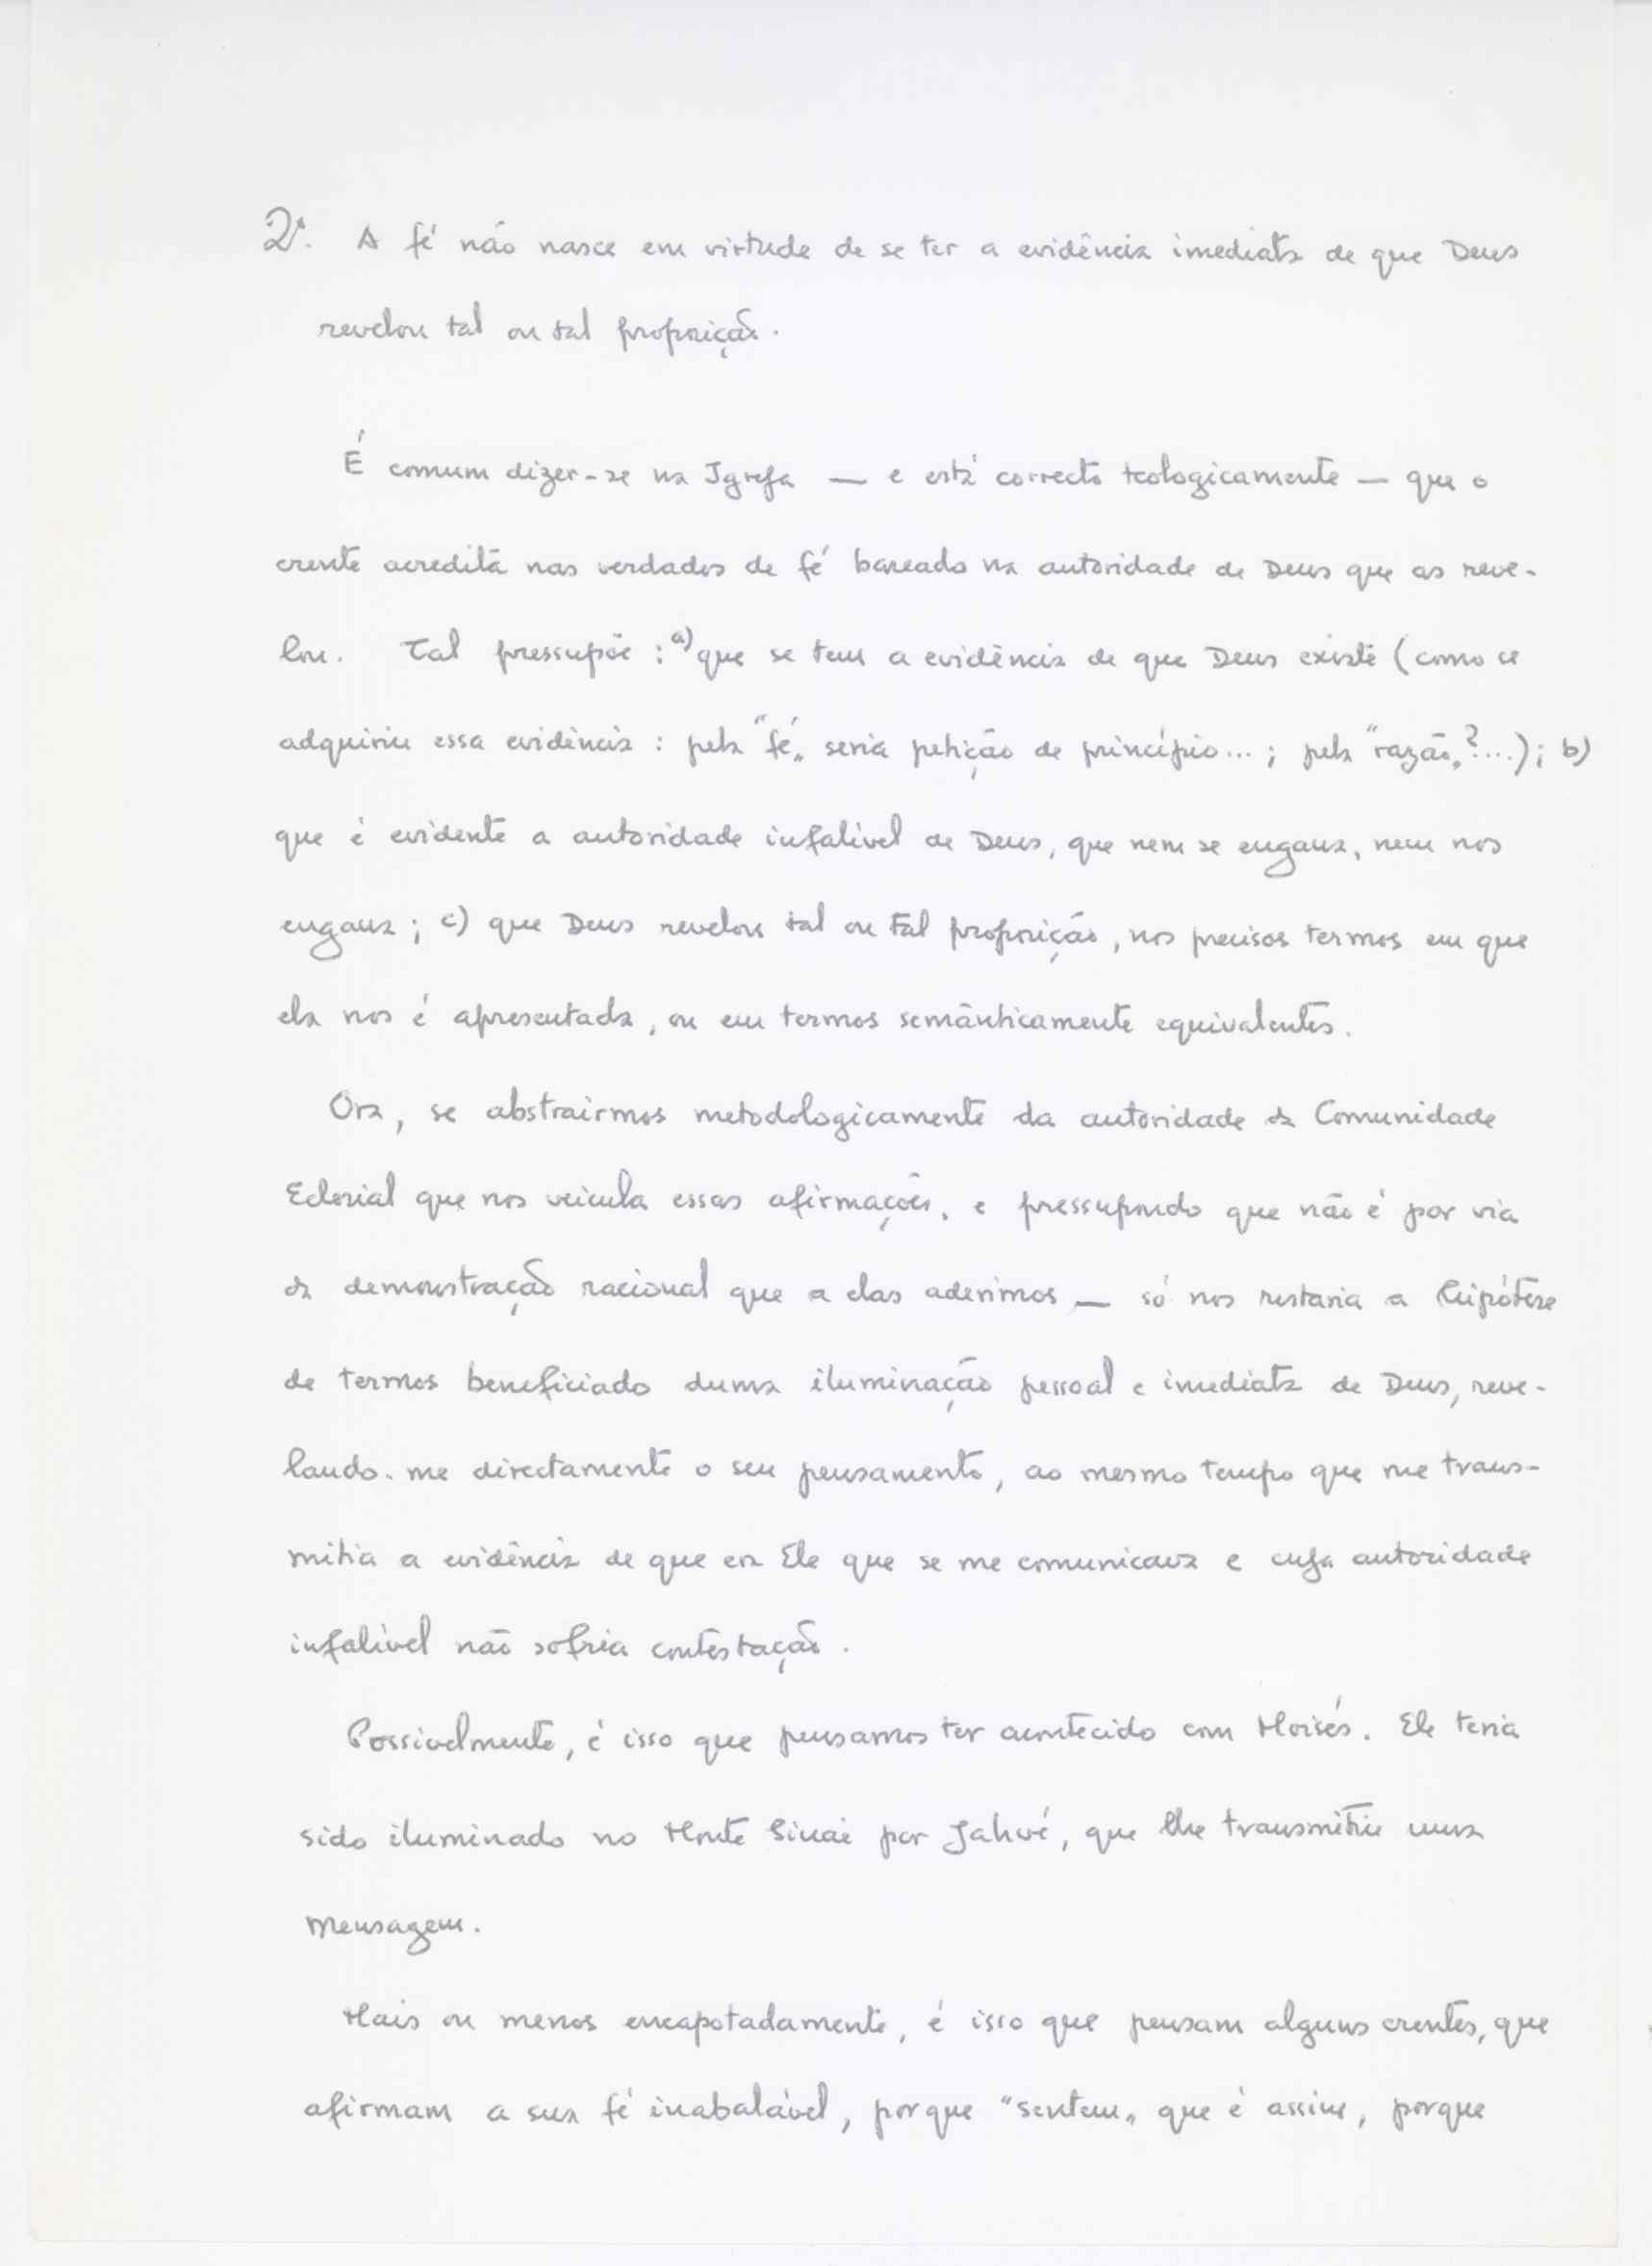 2ª. A fé não nasce em virtude de se ter a evidência imediata de que Deus
revelou tal ou tal proposição.
É comum dizer-se na Igreja — e está correcto teologicamente — que o
crente acredita nas verdades de fé baseado na autoridade de Deus que as reve-
lou. Tal pressupõe : a) que se tem a evidência de que Deus existe (como se
adquiriu essa evidência : pela "fé„ seria petição de princípio... ; pela "razão„?...); b)
que é evidente a autoridade infalível de Deus, que nem se engana, nem nos
engana ; c) que Deus revelou tal ou tal proposição, nos precisos termos em que
ela nos é apresentada, ou em termos semânticamente equivalentes.
Ora, se abstrairmos metodologicamente da autoridade da Comunidade
Eclesial que nos veicula essas afirmações, e pressupondo que não é por via
da demonstração racional que a elas aderimos — só nos restaria a hipótese
de termos beneficiado duma iluminação pessoal e imediata de Deus, reve-
lando-me directamente o seu pensamento, ao mesmo tempo que me trans-
mitia a evidência de que era Ele que se me comunicava e cuja autoridade
infalível não sofria contestação.
Possivelmente, é isso que pensamos ter acontecido com Moisés. Ele teria
sido iluminado no Monte Sinai por Jahvé, que lhe transmitiu uma
mensagem.
Mais ou menos encapotadamente, é isso que pensam alguns crentes, que
afirmam a sua fé inabalável, porque "sentem„ que é assim, porque